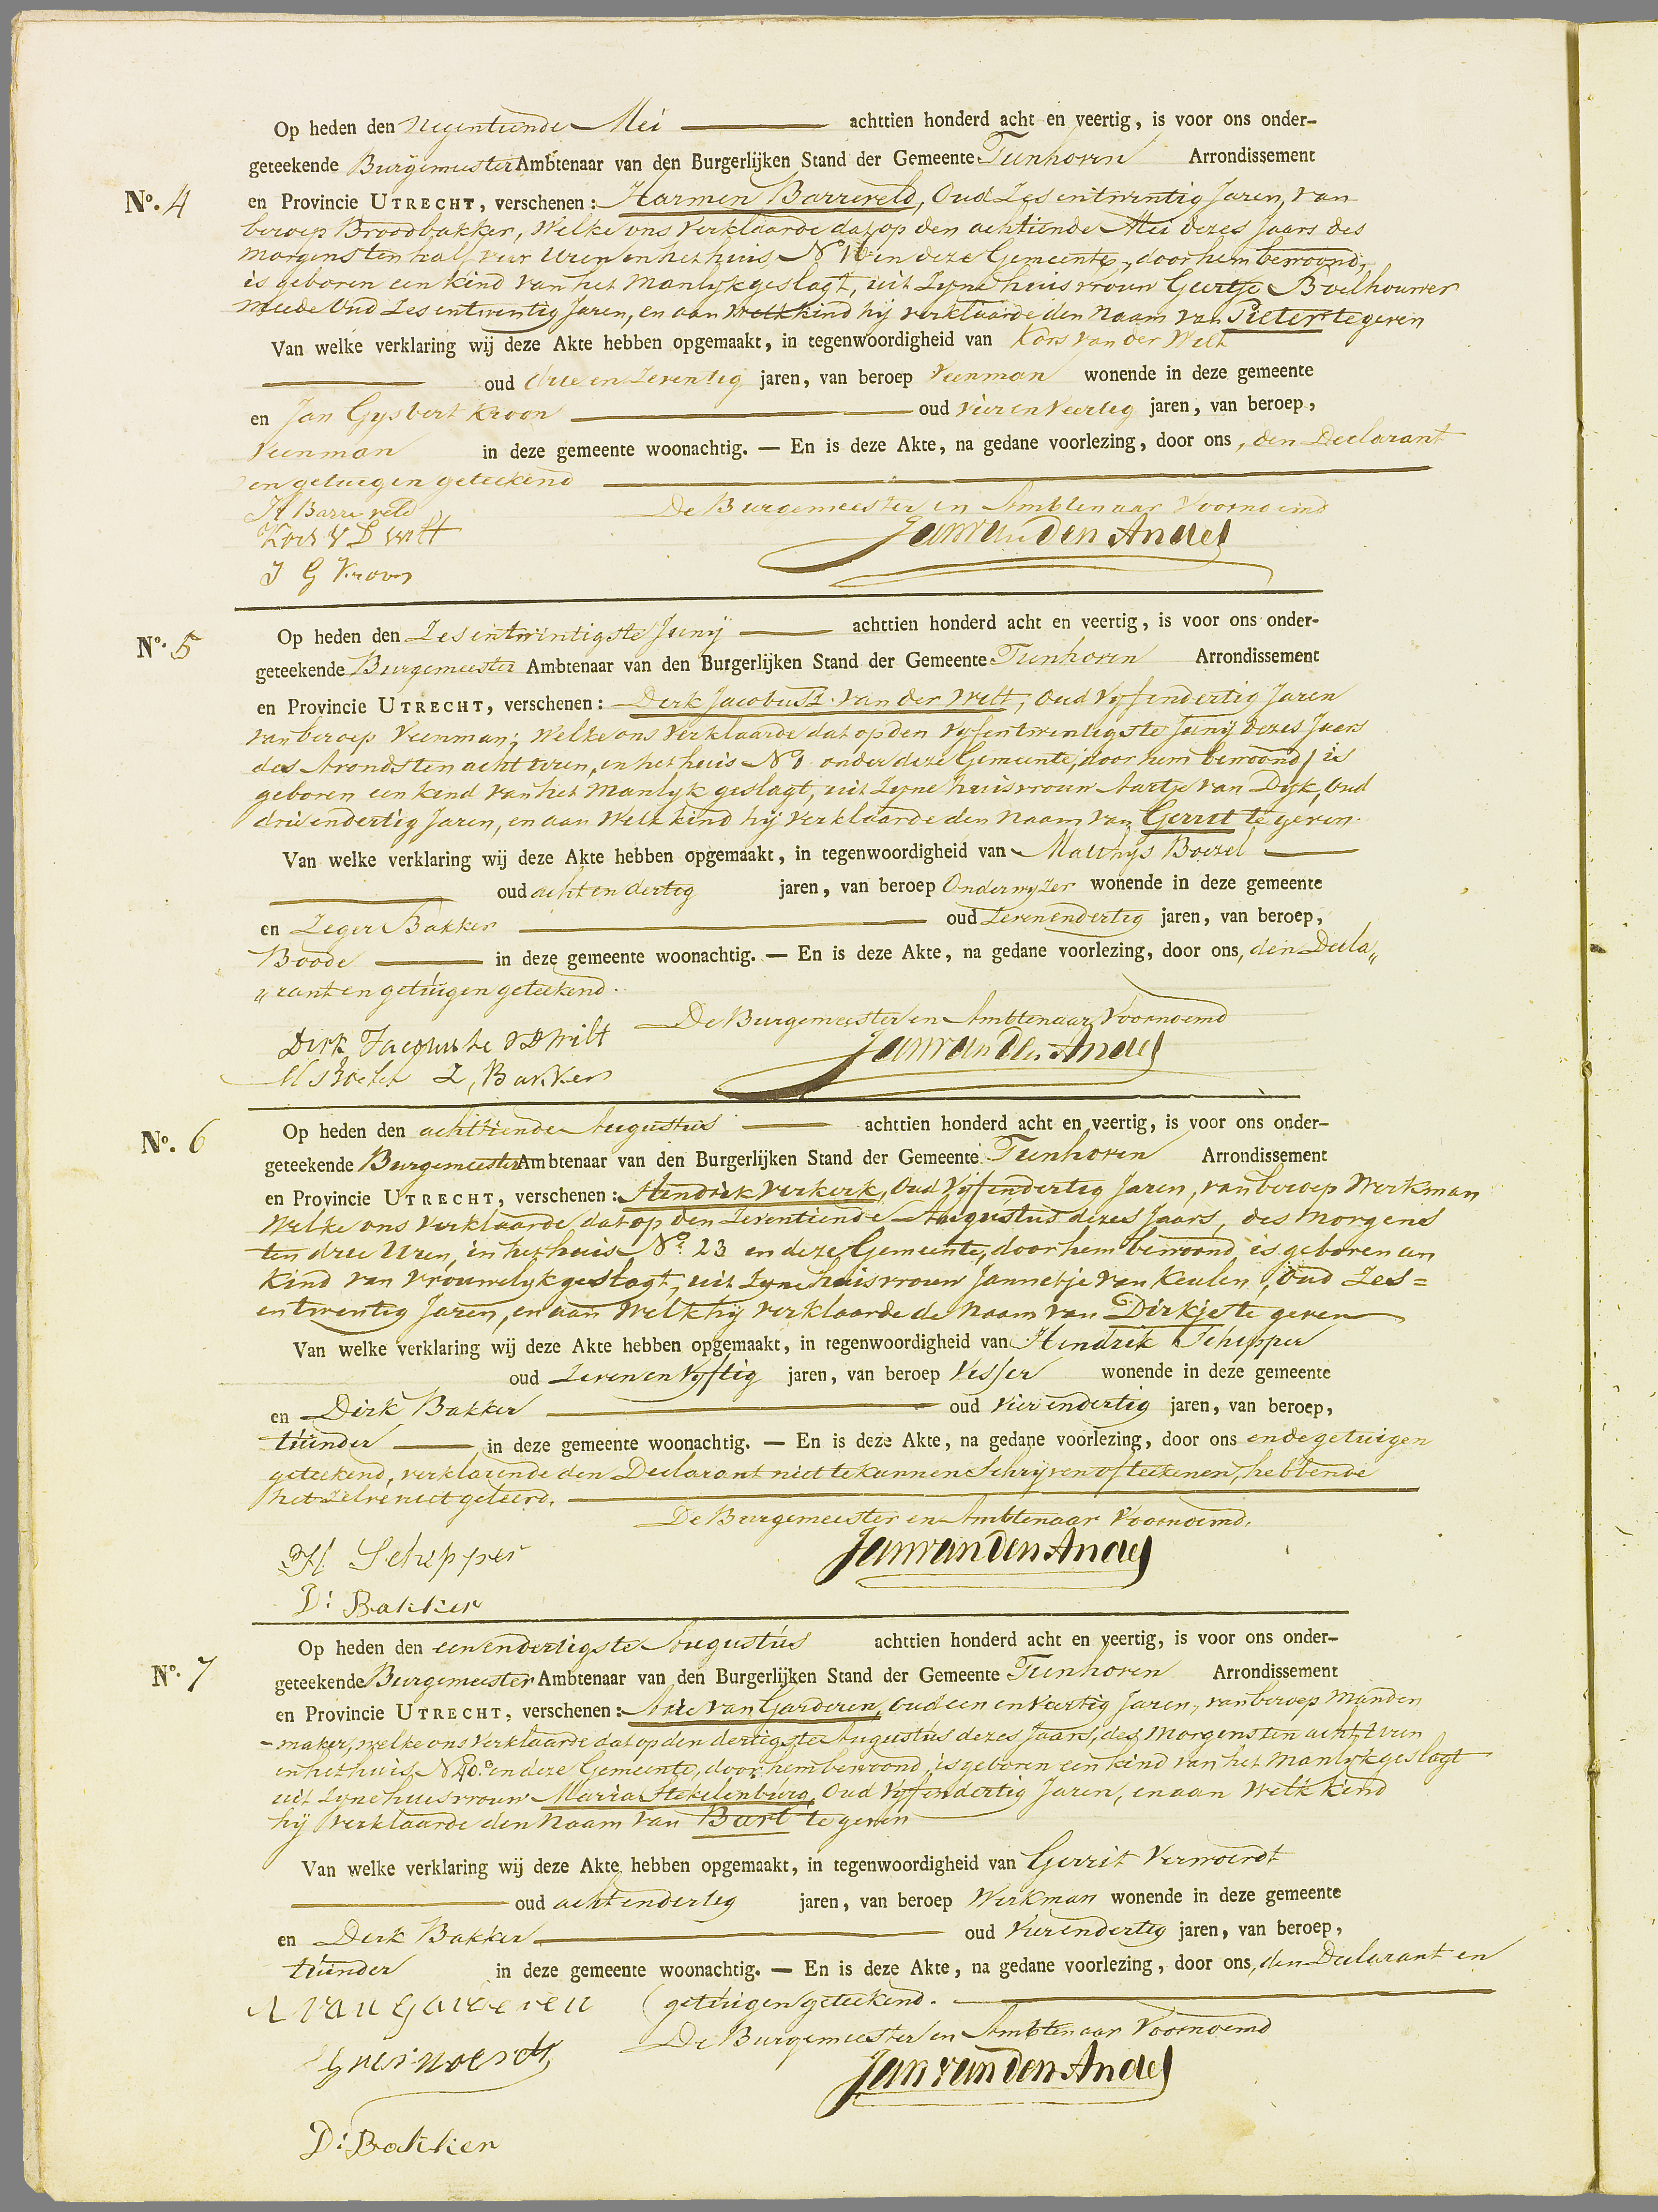 Op heden den Negentiende Mei achttien honderd acht en veertig, is voor ons onder-
geteekende Burgemeester Ambtenaar van den Burgerlijken Stand der Gemeente Tienhoven Arrondissement
No. 4 en Provincie UTRECHT, verschenen: Harmen Barreveld, Oud Zes entwintig Jaren, van
beroep Broodbakker, Welke ons Verklaarde dat op den achtiende Mei dezes Jaars des
morgens ten half vier Uren in het huis No 10 in deze Gemeente, door hem bewoond,
is geboren een kind van het Manlyk geslagt, uit Zyne huisvrouw Geertje Boelhouwer
meede Oud Zes entwintig Jaren, en aan welk kind hij verklaarde den Naam van Pieter te geven
Van welke verklaring wij deze Akte hebben opgemaakt, in tegenwoordigheid van Kors van der Welt
oud drie en Zeventig jaren, van beroep Veenman wonende in deze gemeente
en Jan Gysbert Kroon oud vier en Veertig jaren, van beroep,
Veenman in deze gemeente woonachtig. — En is deze Akte, na gedane voorlezing, door ons, den Declarant
en getuigen geteekend
H Barreveld De Burgemeester en Ambtenaar Voornoemd
Kors V D Wilt Jan van den Andel
J G Kroon
No. 5 Op heden den Zes entwintigste Junij achttien honderd acht en veertig, is voor ons onder-
geteekende Burgemeester Ambtenaar van den Burgerlijken Stand der Gemeente Tienhoven Arrondissement
en Provincie UTRECHT, verschenen: Dirk Jacobus van der Welt, Oud Vyf endertig Jaren
van beroep Veenman; Welke ons Verklaarde dat op den vyf entwintigste Junij dezes Jaars
des Avonds ten acht uren, in het huis No onder deze Gemeente, door hem bewoond, is
geboren een kind van het Manlyk geslagt, uit Zyne huisvrouw Aartje van Dyk, Oud
drie endertig Jaren, en aan Welk kind hij verklaarde den Naam van Gerrit te geven.
Van welke verklaring wij deze Akte hebben opgemaakt, in tegenwoordigheid van Matthys Boezel
oud acht en dertig jaren, van beroep Onderwyzer wonende in deze gemeente
en Zeger Bakker oud Zeven endertig jaren, van beroep,
Boode in deze gemeente woonachtig. — En is deze Akte, na gedane voorlezing, door ons, den Decla„
„rant en getuigen geteekend.
De Burgemeester en Ambtenaar Voornoemd
Dirk Jacobus V D Wilt Jan van den Andel
Z, Bakker
No. 6 Op heden den achttiende Augustus achttien honderd acht en veertig, is voor ons onder-
geteekende Burgemeester Ambtenaar van den Burgerlijken Stand der Gemeente Tienhoven Arrondissement
en Provincie UTRECHT, verschenen: Hendrik Verkerk, Oud Vyf endertig Jaren, van beroep Werkman
Welke ons verklaarde dat op den Zeventiende Augustus dezes Jaars, des Morgens
ten drie Uren, in het huis No. 23 in deze Gemeente, door hem bewoond, is geboren een
kind van vrouwelyk geslagt, uit Zyne huisvrouw Jannetje van Keulen, Oud Zes=
entwintig Jaren, en aan Welk hij verklaarde de Naam van Dirkje te geven
Van welke verklaring wij deze Akte hebben opgemaakt, in tegenwoordigheid van Hendrik Schipper
oud Zeven en Vyftig jaren, van beroep Visser wonende in deze gemeente
en Dirk Bakker oud vier endertig jaren, van beroep,
tuinder in deze gemeente woonachtig. — En is deze Akte, na gedane voorlezing, door ons en de getuigen
geteekend, verklarende den Declarant niet te kunnen Schryven of teekenen, hebbende
het zelve niet geleerd.
De Burgemeester en Ambtenaar Voornoemd.
H Schipper Jan van den Andel
D: Bakker
Op heden den eenendertigste Augustus achttien honderd acht en veertig, is voor ons onder-
No. 7 geteekende Burgemeester Ambtenaar van den Burgerlijken Stand der Gemeente Tienhoven Arrondissement
en Provincie UTRECHT, verschenen: Arie van Garderen, Oud een en Veertig Jaren, van beroep Manden
-maker, welke ons verklaarde dat op den dertigste Augustus dezes Jaars, des Morgens ten acht Uren
in het huis No in deze Gemeente, door hem bewoond, is geboren een kind van het Manlyk geslagt
uit Zyne huisvrouw Maria Stekelenburg, Oud Vyf endertig Jaren, en aan Welk kind
hij verklaarde den Naam van Bart te geven
Van welke verklaring wij deze Akte hebben opgemaakt, in tegenwoordigheid van Gerrit Verwoerdt
oud acht endertig jaren, van beroep Werkman wonende in deze gemeente
en Dirk Bakker oud Vier endertig jaren, van beroep,
tuinder in deze gemeente woonachtig. — En is deze Akte, na gedane voorlezing, door ons, den Declarant en
A van Garderen (getuigen geteekend.
De Burgemeester en Ambtenaar Voornoemd
G verwoerdt Jan van den Andel
D: Bakker